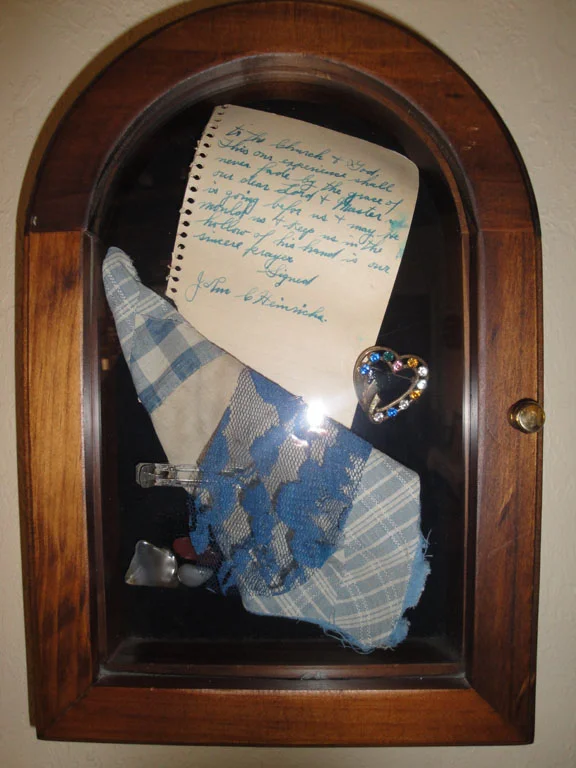 to the Church & God,
This our experience shall
never fade by the grace of
our dear Lord & Master!
is going before us & may he
us & keep us in the
hollow of his hand is our
sincere prayer
Signed
John C Heinrichs.